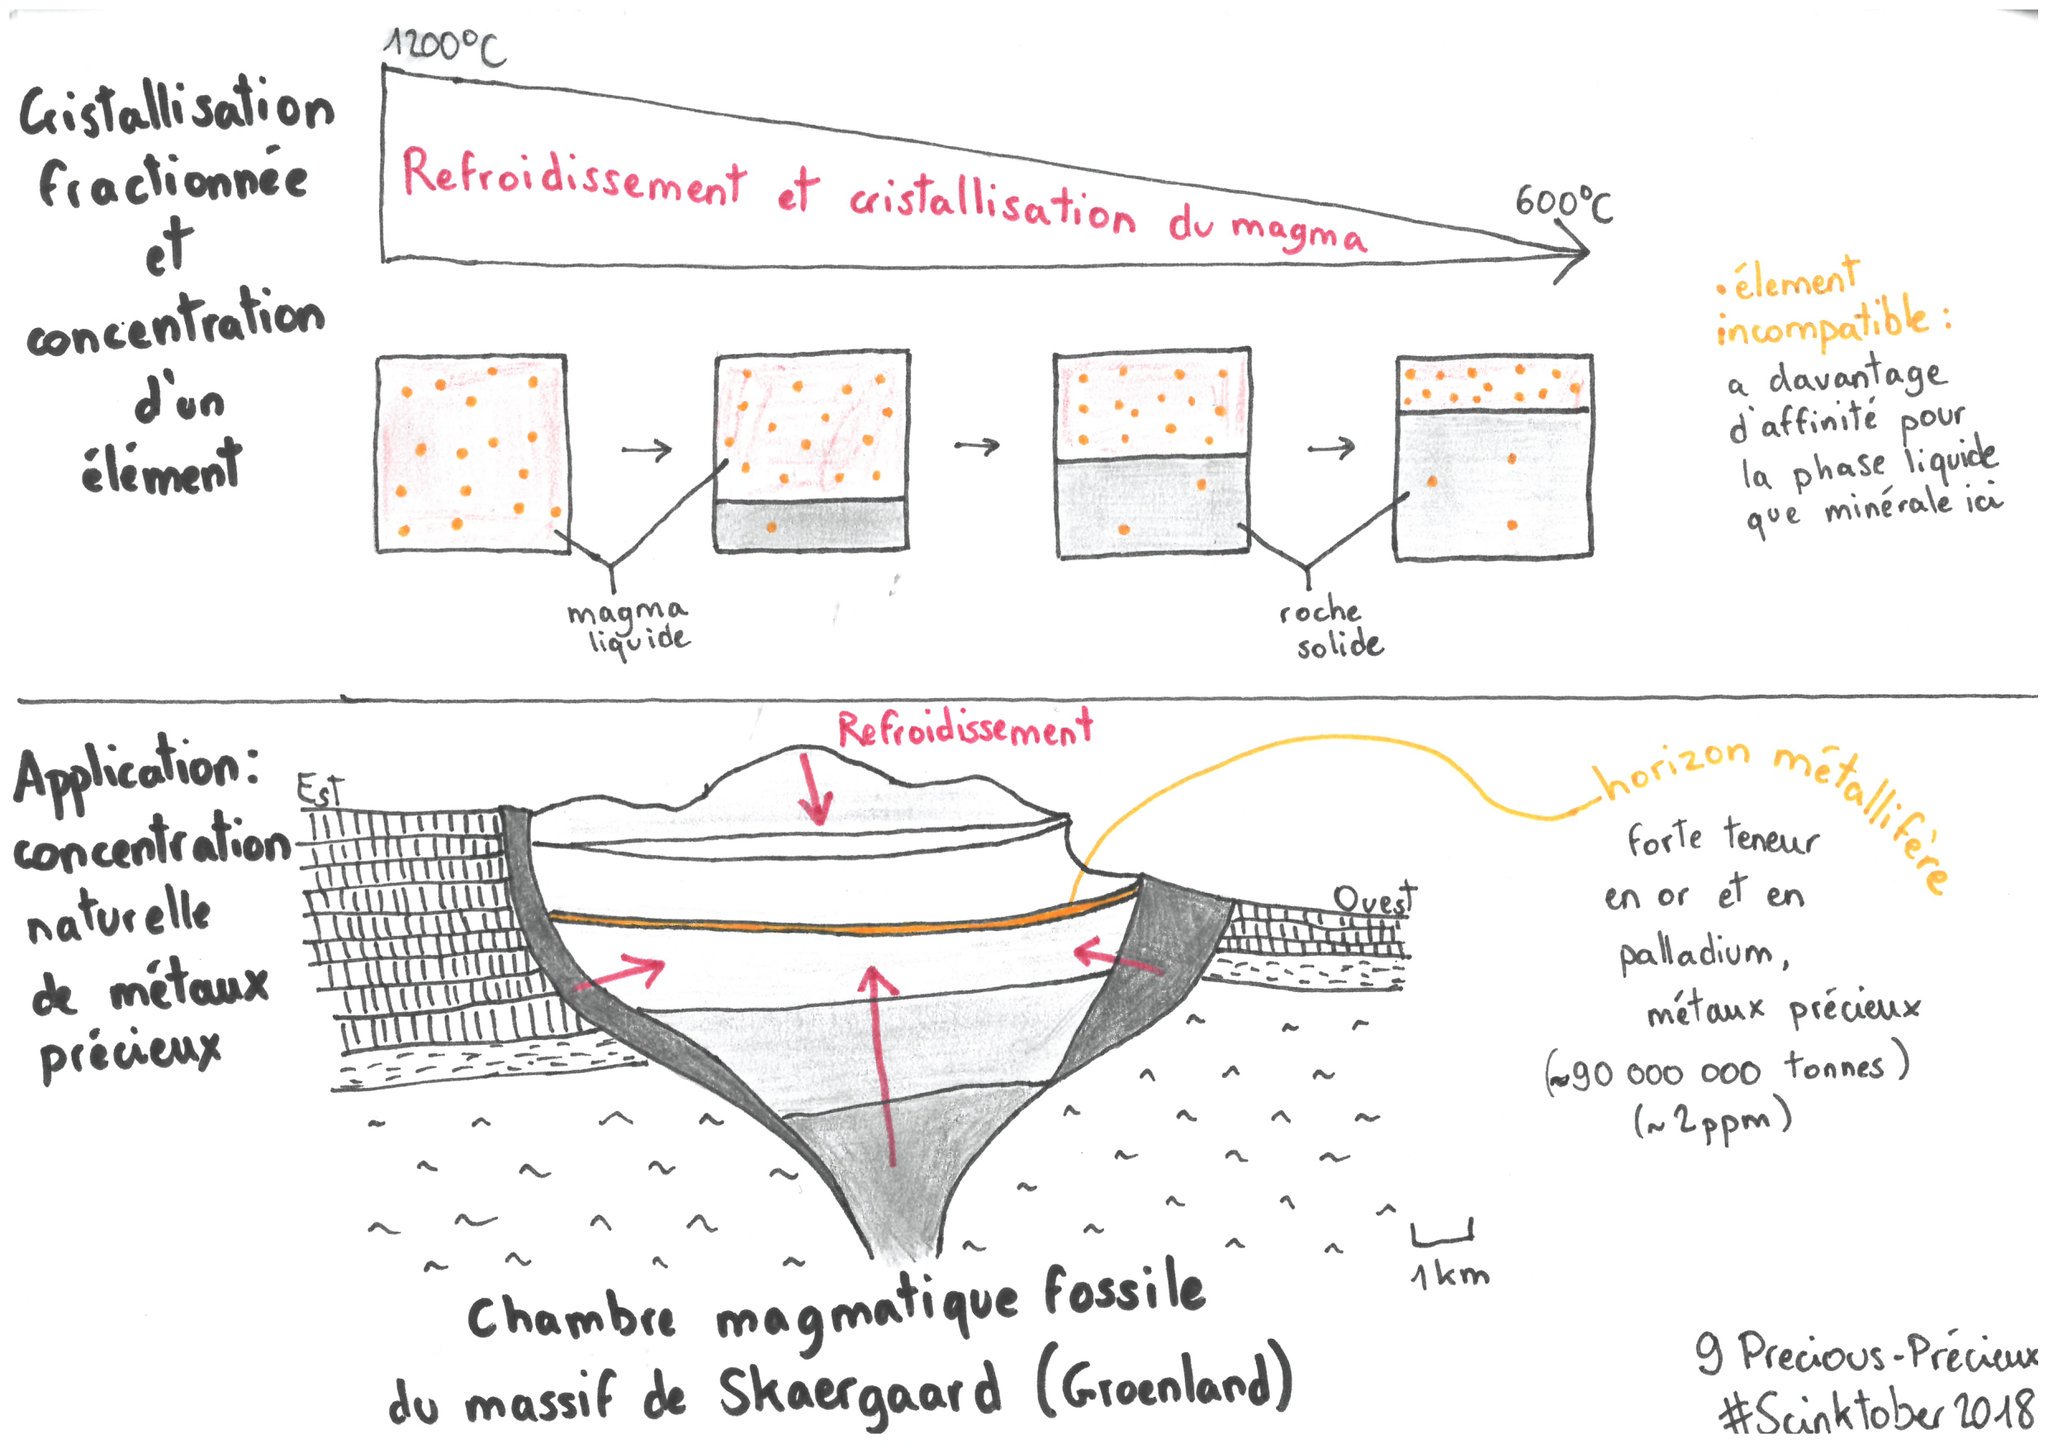 Cristallisation
fractionnée
et
concentration
d'un
élément
1200°C
Refroidissement et cristallisation du magma
600°C
• élement
incompatible :
a davantage
d'affinité pour
la phase liquide
que minérale ici
magma
liquide
roche
solide
Application :
concentration
naturelle
de métaux
précieux
Refroidissement
Est
Ouest
horizon métallifère
forte teneur
en or et en
palladium,
métaux précieux
(~90 000 000 tonnes)
(~2ppm)
1km
Chambre magmatique fossile
du massif de Skaergaard (Groenland)
9 Precious-Précieux
#Scinktober 2018